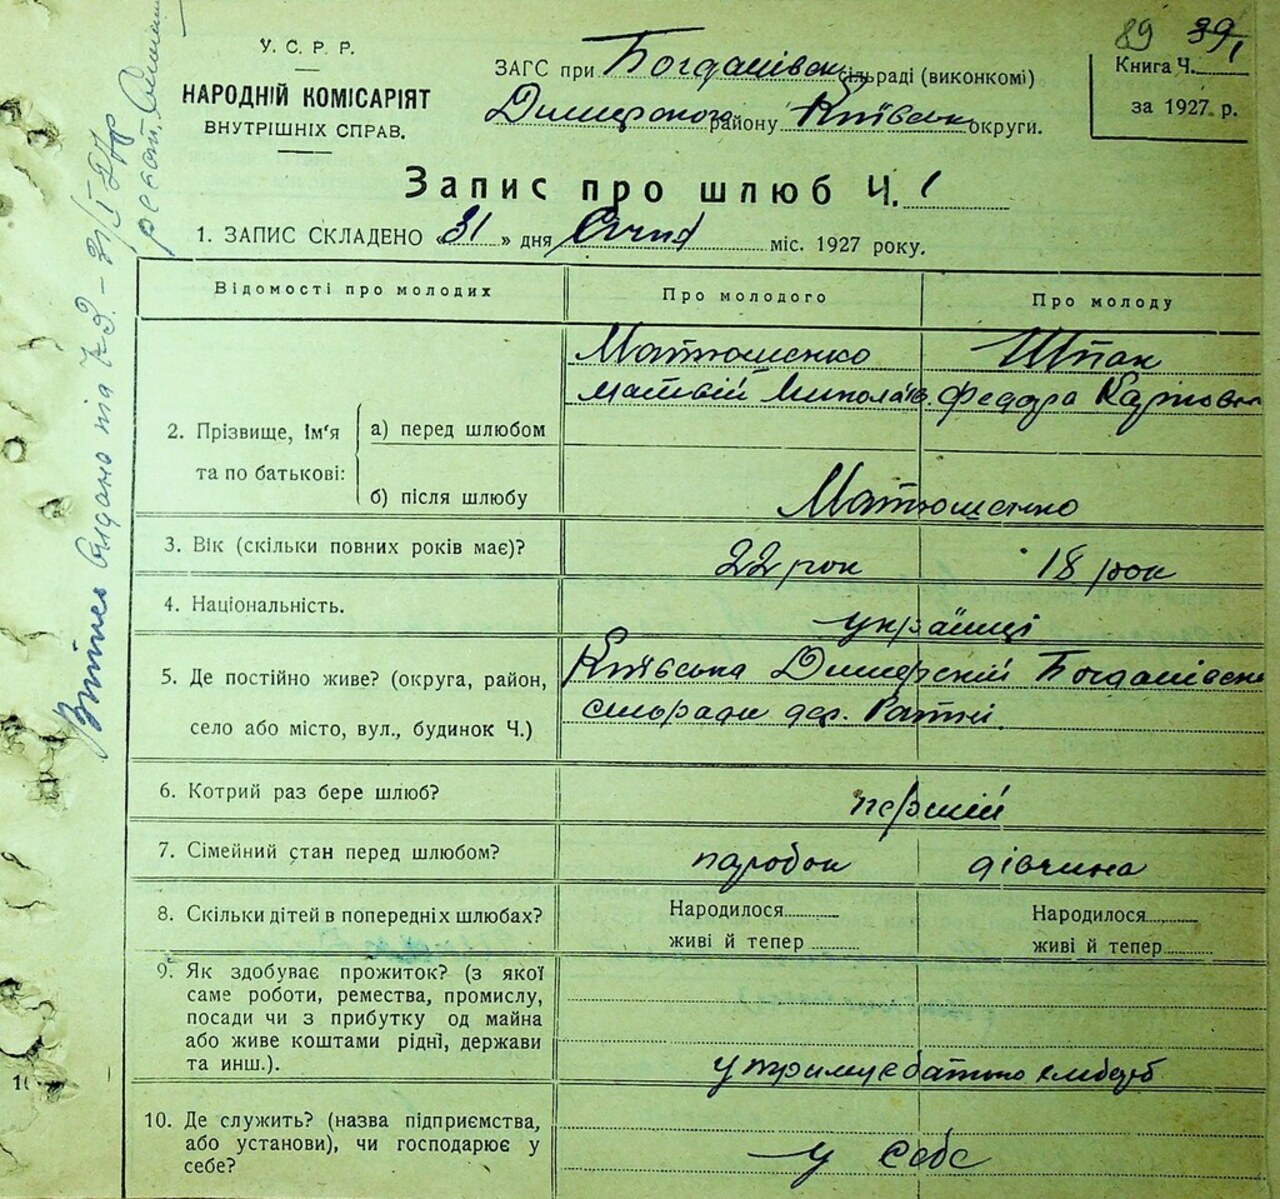 89 39/1
У. С. Р. Р.
НАРОДНІЙ КОМІСАРІЯТ
ВНУТРІШНІХ СПРАВ.
ЗАГС при Богданівськ сільраді (виконкомі)
Димерського району Київськ округи.
Книга Ч.
за 1927 р.
Запис про шлюб Ч. 1
1. ЗАПИС СКЛАДЕНО «31» дня Січня міс. 1927 року.
Відомості про молодих Про молодого Про молоду
Матюшенко Шпак
Матвій Миколаїв. Федора Карповна
2. Прізвище, Ім'я та по батькові:
а) перед шлюбом
б) після шлюбу Матюшенко
3. Вік (скільки повних років має)? 22 рок 18 рок
4. Національність. українці
5. Де постійно живе? (округа, район, Київська Димерській Богданівськ
село або місто, вул., будинок Ч.) сільради дер. Ратні.
6. Котрий раз бере шлюб? першій
7. Сімейний стан перед шлюбом? паробок дівчина
8. Скільки дітей в попередніх шлюбах? Народилося Народилося
живі й тепер живі й тепер
9. Як здобуває прожиток? (з якої
саме роботи, ремества, промислу,
посади чи з прибутку од майна
або живе коштами рідні, держави
та инш.). утримує батько
10. Де служить? (назва підприємства,
або установи), чи господарює у
себе? у себе
Витяг видано під